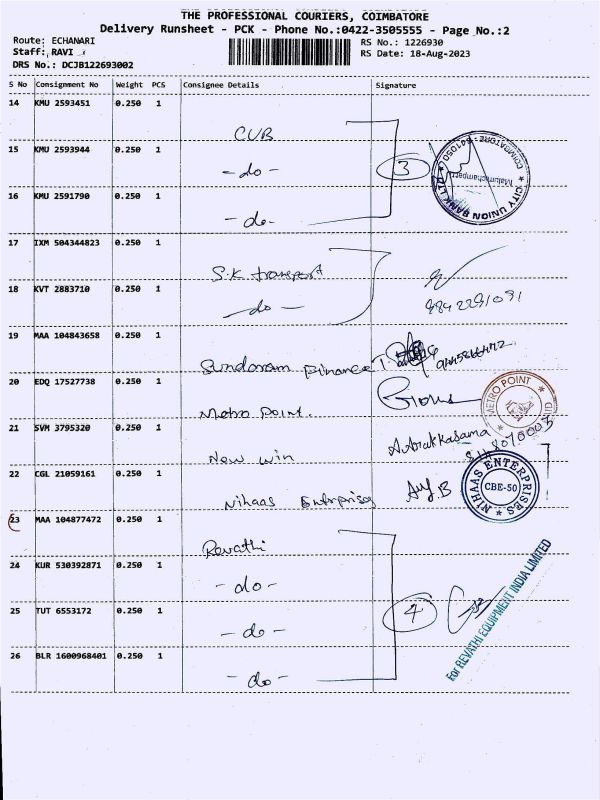 THE PROFESSIONAL COURIERS, COIMBATORE
Delivery Runsheet - PCK - Phone No.:0422-3505555 - Page No.:2
Route: ECHANARI
Staff: RAVI
DRS No.: DCJB122693002
RS No.: 1226930
RS Date: 18-Aug-2023
S No Consignment No Weight PCS Consignee Details Signature
14 KMU 2593451 0.250 1 CUB
15 KMU 2593944 0.250 1 -do- 3
16 KMU 2591790 0.250 1 -do-
CITY UNION BANK LTD * COIMBATORE - 641050 *
Malumichampatti
17 IXM 504344823 0.250 1 S.K transport
18 KVT 2883710 0.250 1 -do-
19 MAA 104843658 0.250 1 Sundaram Finance
20 EDQ 17527738 0.250 1 Metro Point.
METRO POINT
21 SVM 3795320 0.250 1 New win
22 CGL 21059161 0.250 1 Nihaas Enterprises
NIHAAS ENTERPRISES
CBE-50
23 MAA 104877472 0.250 1 Revathi
24 KUR 530392871 0.250 1 -do-
25 TUT 6553172 0.250 1 -do- 4
26 BLR 1600968401 0.250 1 -do-
For REVATHI EQUIPMENT INDIA LIMITED